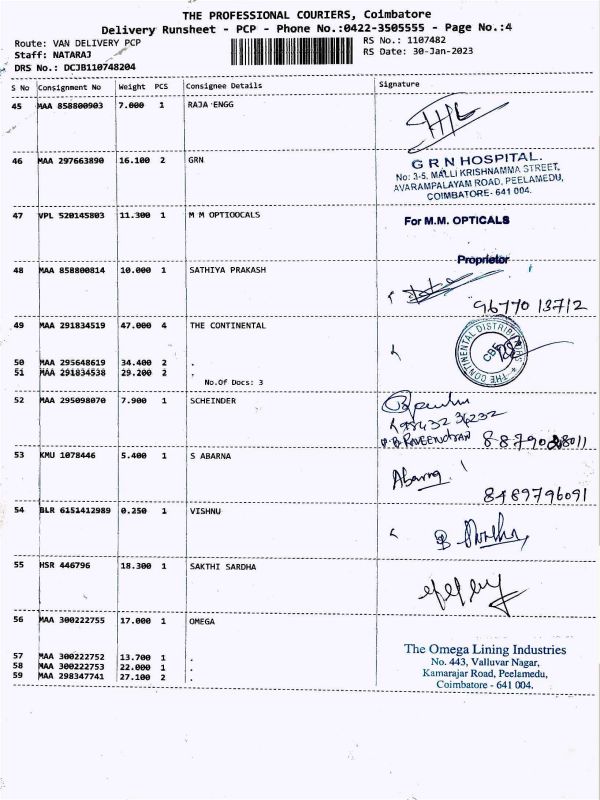 THE PROFESSIONAL COURIERS, Coimbatore
Delivery Runsheet - PCP - Phone No.:0422-3505555 - Page No.:4
Route: VAN DELIVERY PCP
Staff: NATARAJ
DRS No.: DCJB110748204
RS No.: 1107482
RS Date: 30-Jan-2023
S No Consignment No Weight PCS Consignee Details Signature
45 MAA 858800903 7.000 1 RAJA ENGG
46 MAA 297663890 16.100 2 GRN
G R N HOSPITAL.
No: 3-5, MALLI KRISHNAMMA STREET,
AVARAMPALAYAM ROAD, PEELAMEDU,
COIMBATORE- 641 004.
47 VPL 520145803 11.300 1 M M OPTIOOCALS
For M.M. OPTICALS
Proprietor
48 MAA 858800814 10.000 1 SATHIYA PRAKASH
96770 13712
49 MAA 291834519 47.000 4 THE CONTINENTAL
THE CONTINENTAL DISTRIBUTORS
CBE
50 MAA 295648619 34.400 2 .
51 MAA 291834538 29.200 2 .
No.Of Docs: 3
52 MAA 295098070 7.900 1 SCHEINDER
53 KMU 1078446 5.400 1 S ABARNA
Abarna
8489796091
54 BLR 6151412989 0.250 1 VISHNU
55 HSR 446796 18.300 1 SAKTHI SARDHA
56 MAA 300222755 17.000 1 OMEGA
57 MAA 300222752 13.700 1 .
58 MAA 300222753 22.000 1 .
59 MAA 298347741 27.100 2 .
The Omega Lining Industries
No. 443, Valluvar Nagar,
Kamarajar Road, Peelamedu,
Coimbatore - 641 004.